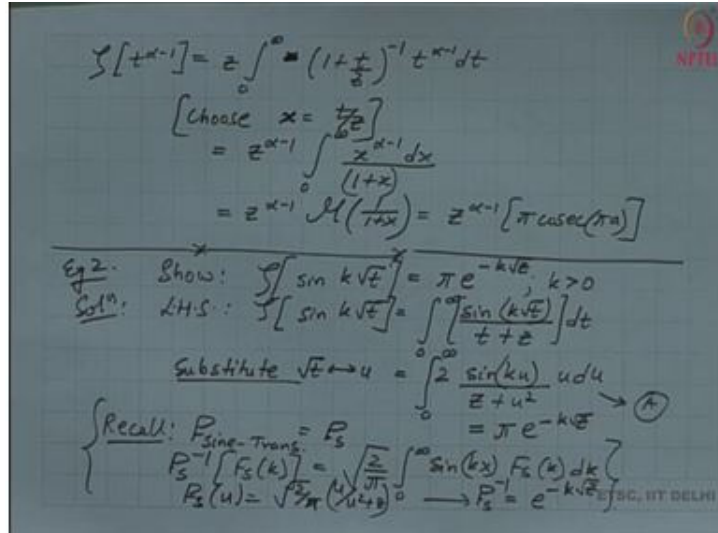 NPTEL
ζ[t^{α-1}] = z ∫_0^∞ (1 + t/z)^{-1} t^{α-1} dt
[Choose x = t/z]
= z^{α-1} ∫_0^∞ x^{α-1} dx / (1+x)
= z^{α-1} M(1/(1+x)) = z^{α-1} [π cosec(πa)]
Eg 2. Show: ζ[sin k√t] = π e^{-k√z}; k>0
Solⁿ: L.H.S.: ζ[sin k√t] = ∫_0^∞ [sin(k√t) / (t+z)] dt
Substitute √t ↔ u = ∫_0^∞ 2 sin(ku) / (z+u²) u du → (A)
= π e^{-k√z}
{Recall: F_{Sine-Trans.} = F_s
F_s^{-1}[F_s(k)] = √(2/π) ∫_0^∞ sin(kx) F_s(k) dk
F_s(u) = √(2/π) (u/(u²+z)) → F_s^{-1} = e^{-k√z}}
ETSC, IIT DELHI